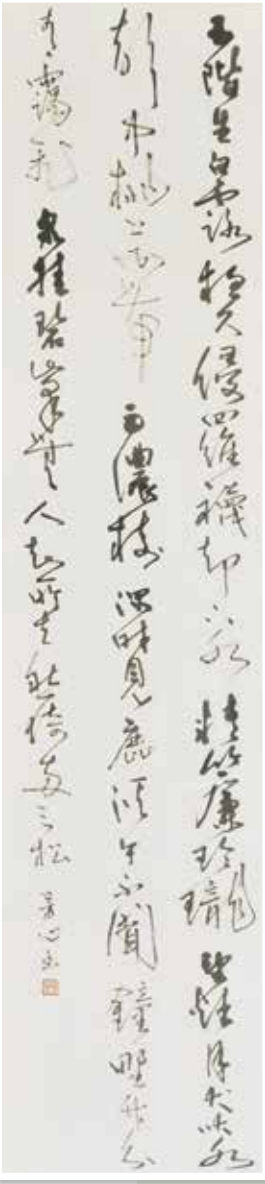 玉階生白露夜久侵羅襪却下水精簾玲瓏望秋月犬吠水
聲中桃花帶雨濃樹深時見鹿溪午不聞鐘野竹分
青靄飛泉挂碧峰無人知所去愁倚兩三松